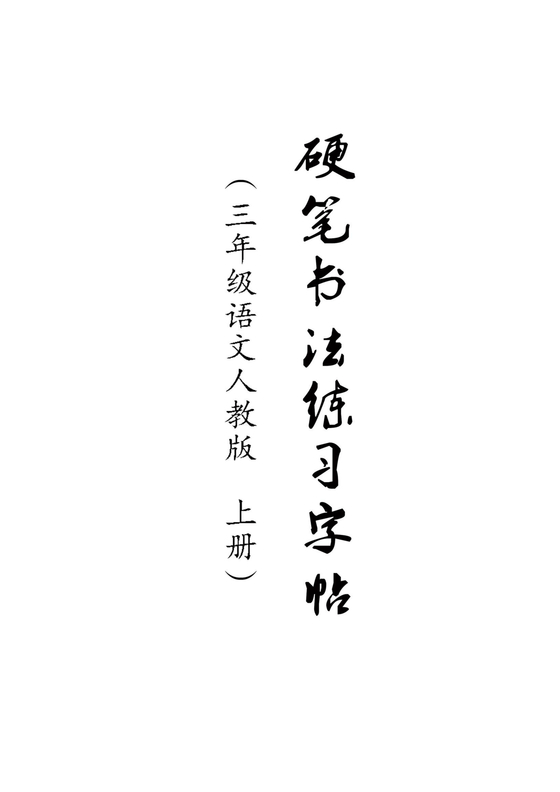 硬笔书法练习字帖
（三年级语文人教版 上册）